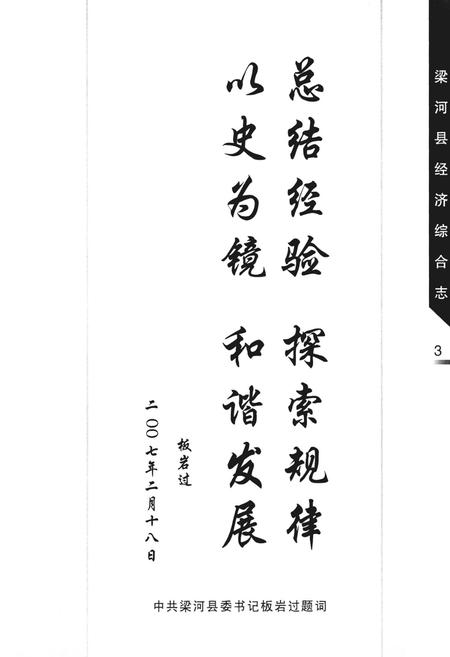 总结经验 探索规律
以史为镜 和谐发展
板岩过
二〇〇七年二月十八日
中共梁河县委书记板岩过题词
梁河县经济综合志
3